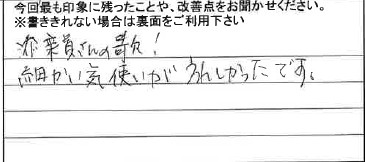 今回最も印象に残ったことや、改善点をお聞かせください。
※書ききれない場合は裏面をご利用下さい
添乗員さんの歌!
細かい気使いがうれしかったです。